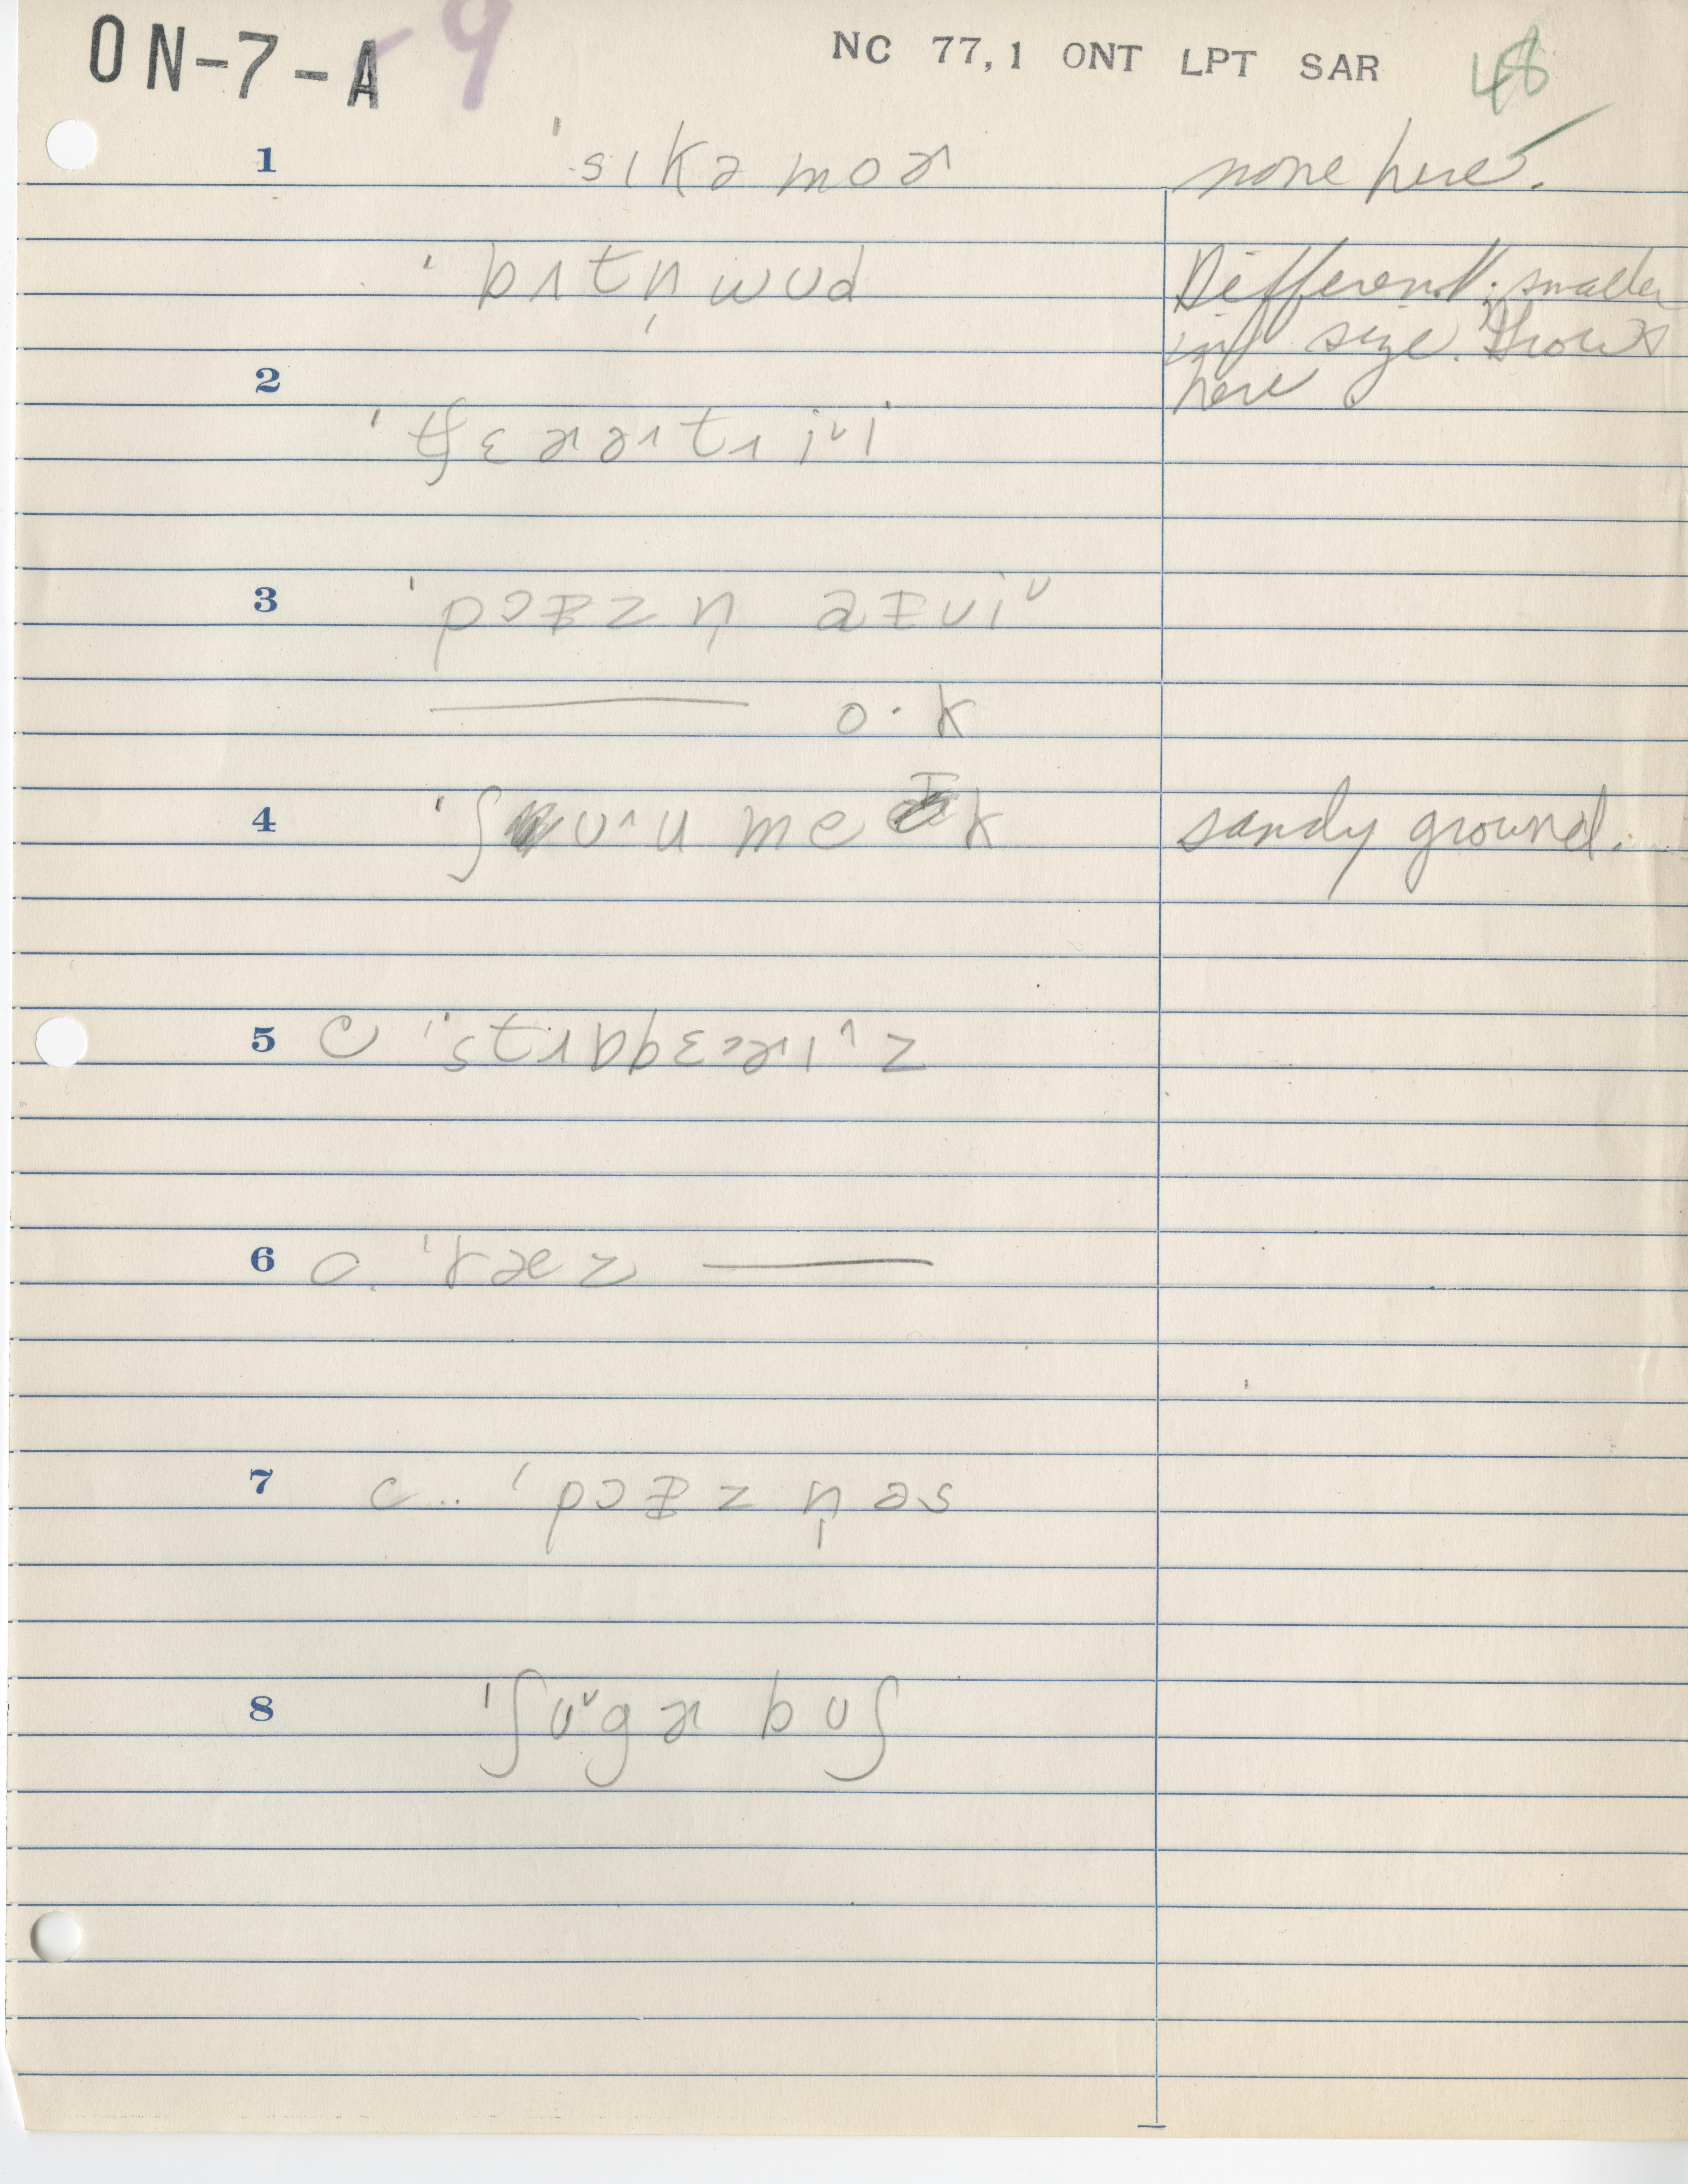 ON-7-A-9
NC 77,1 ONT LPT SAR 48
1 ˈsɪkəmoɚ none here.
ˈbʌtn̩wud Different: smaller
in size. Grows
here
2 ˈtʃɛrɚtri^ɪ
3 ˈpɔɪzn̩ aɪvi
——— o·k
4 ˈʃumek sandy ground.
5 c ˈstrɔbɛriz
6 c. ˈræz ———
7 c.. ˈpɔɪzn̩əs
8 ˈʃugɚbuʃ